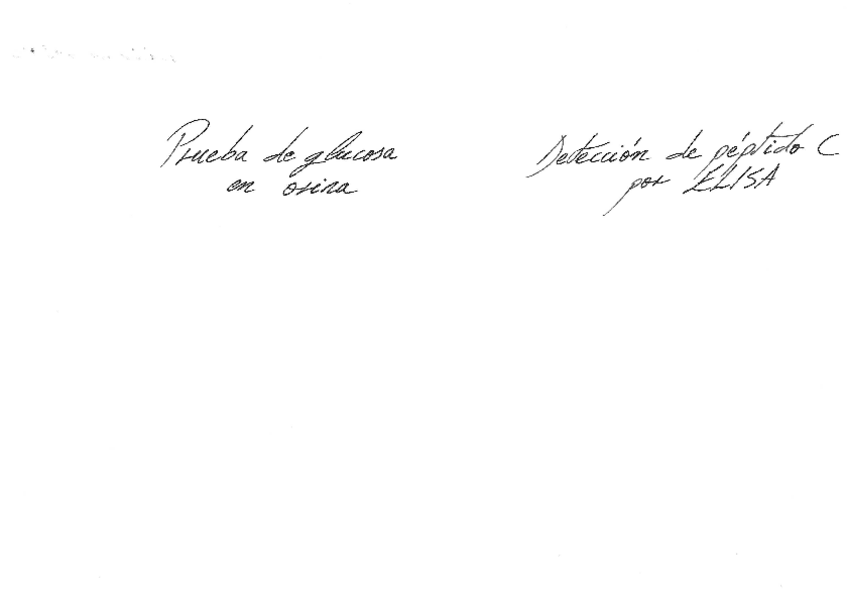 Prueba de glucosa
en orina
Detección de péptido C
por ELISA